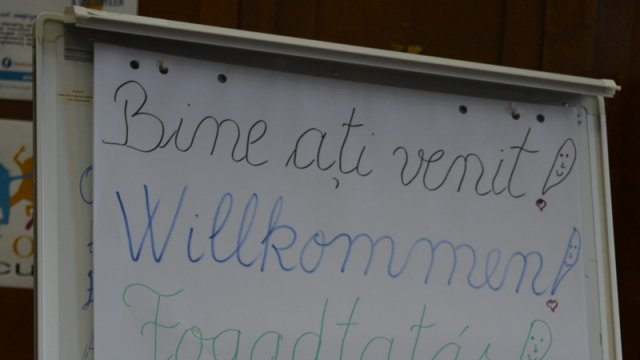 Bine ați venit!
Willkommen!